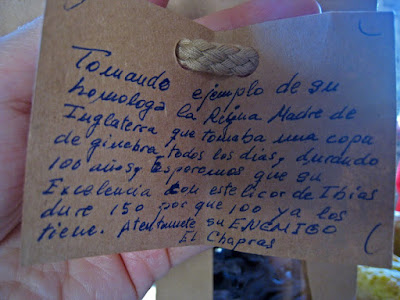 Tomando ejemplo de su
homologa la Reina Madre de
Inglaterra que tomaba una copa
de ginebra todos los dias, durando
100 años, Esperemos que su
Excelencia con este licor de Ibias
dure 150 por que 100 ya los
tiene. Atentamente su ENEMIGO
El Chapras